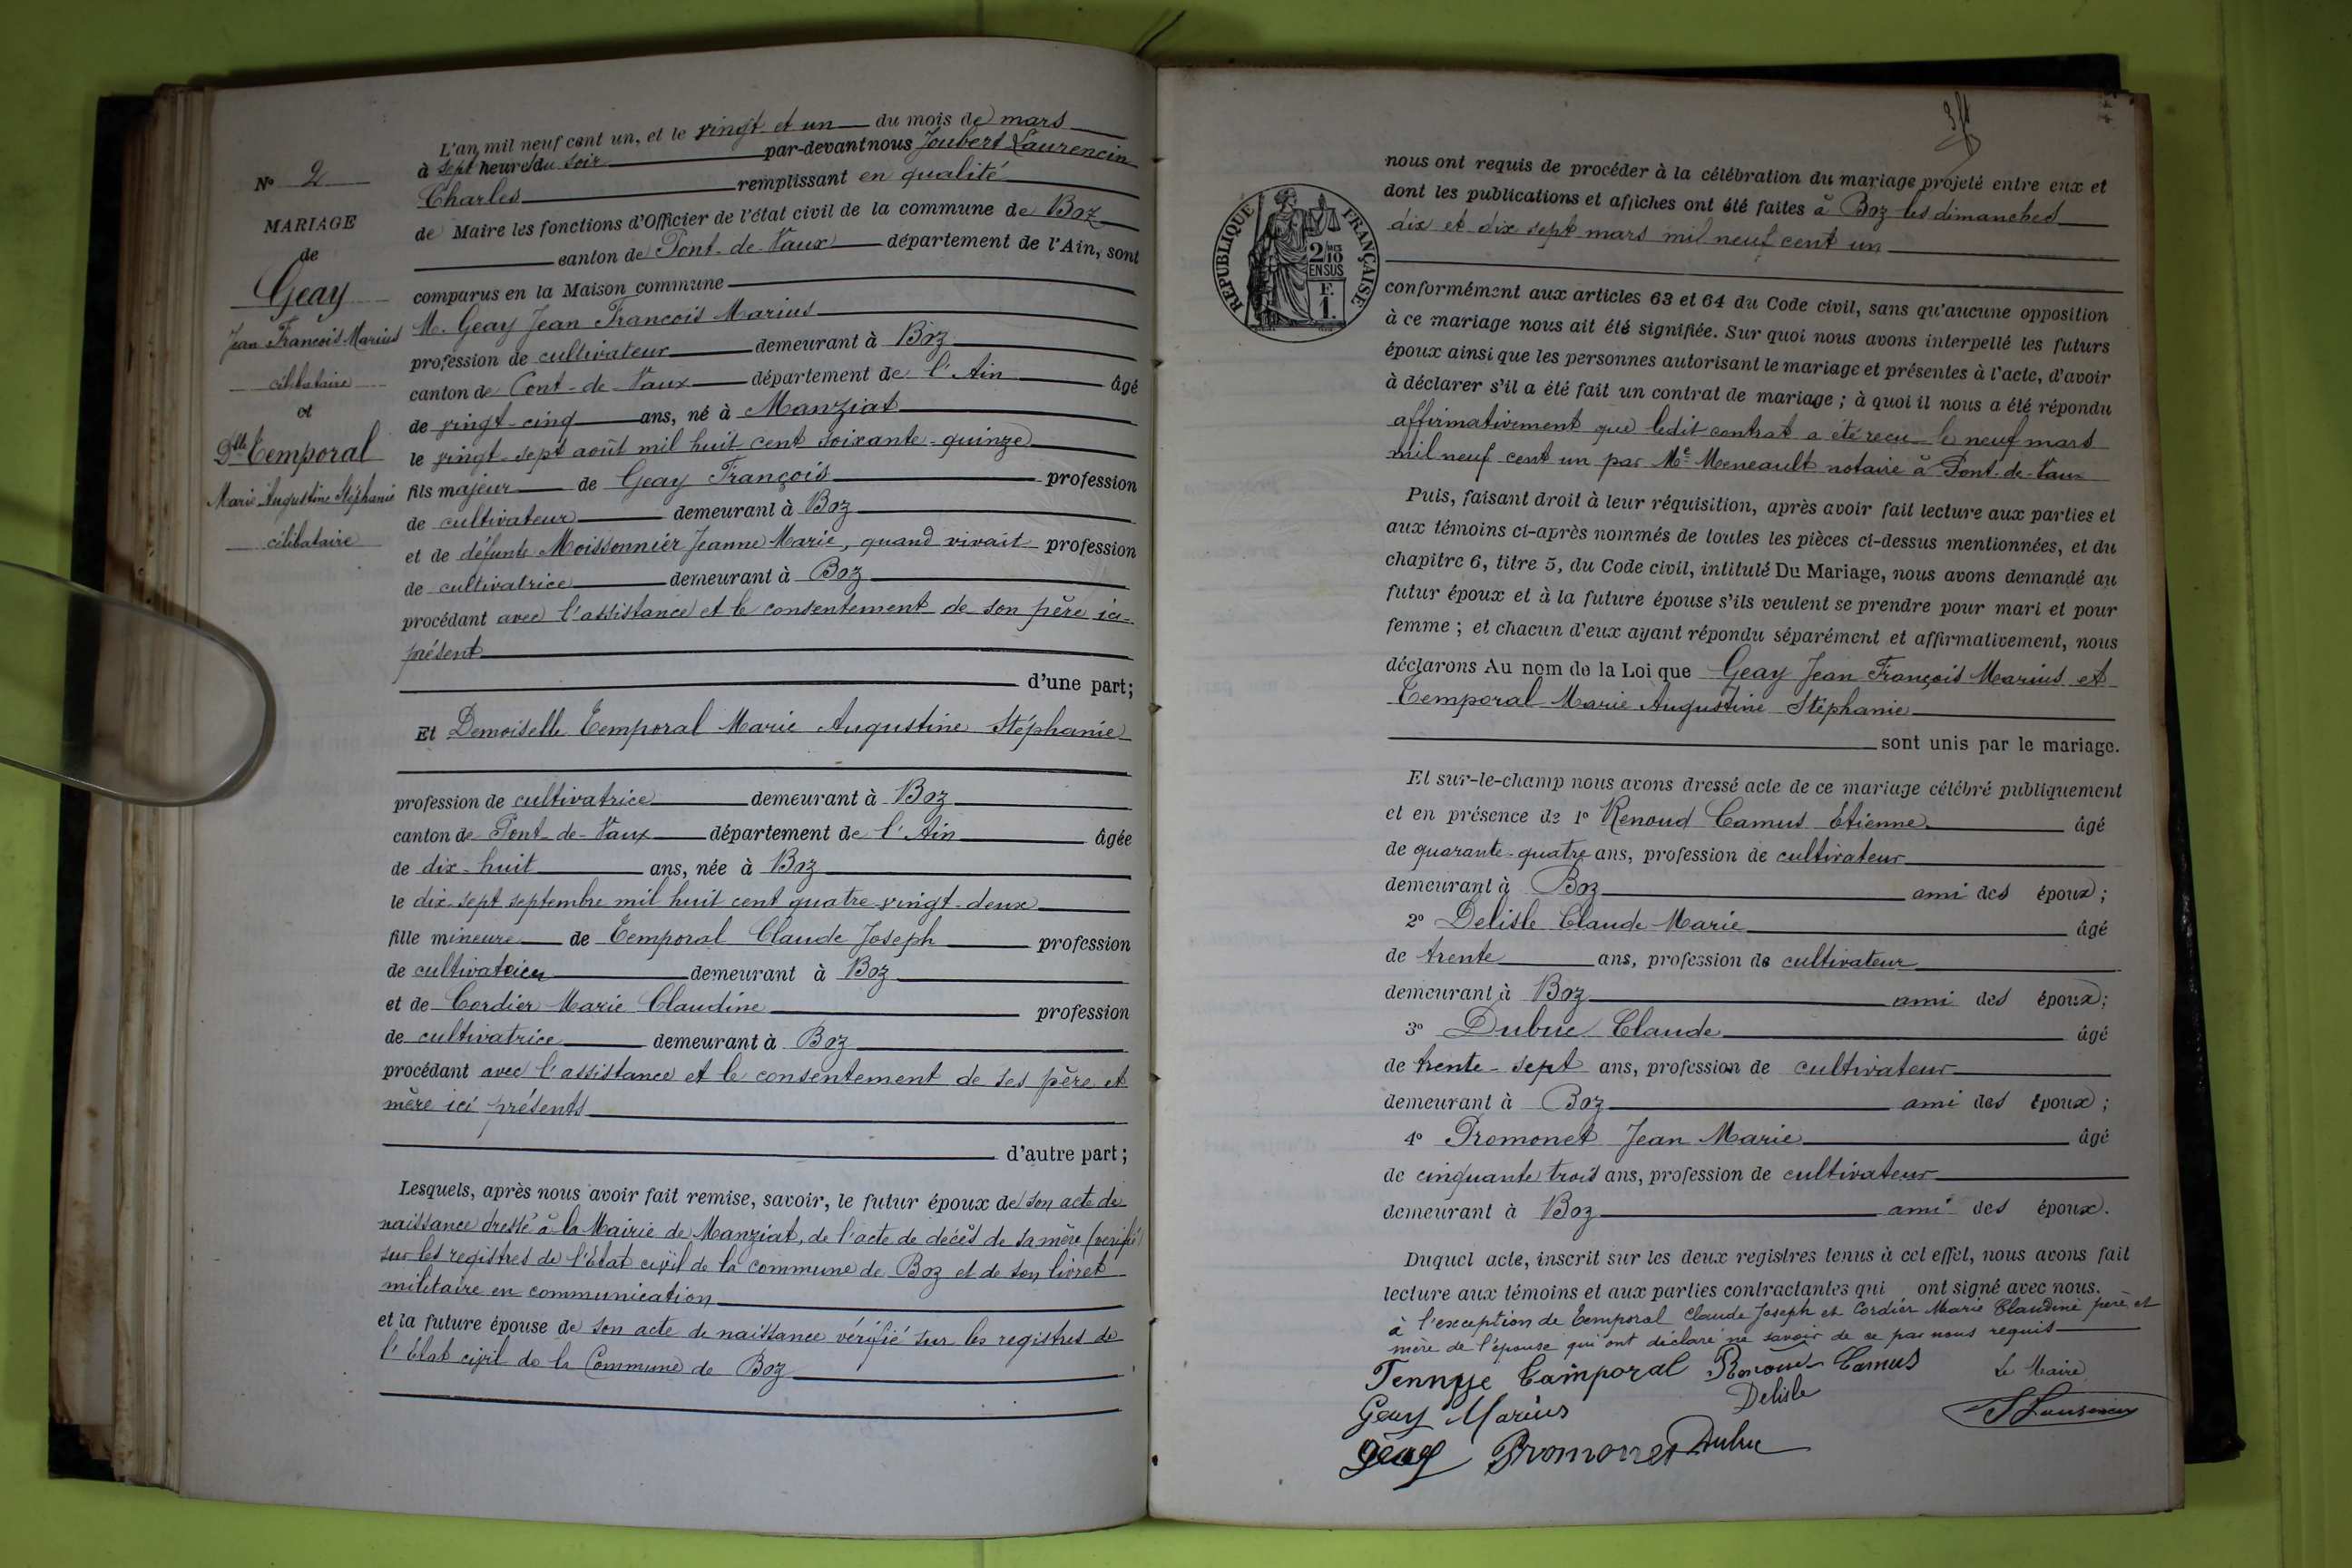 N° 2
MARIAGE
de
Geay
Jean François Marius
célibataire
et
Dlle Temporal
Marie Augustine Stéphanie
célibataire
L'an mil neuf cent un, et le vingt et un du mois de mars
à sept heures du soir par-devant nous Joubert Laurencin
Charles remplissant en qualité
de Maire les fonctions d'Officier de l'état civil de la commune de Boz
canton de Pont-de-Vaux département de l'Ain, sont
comparus en la Maison commune
M. Geay Jean François Marius
profession de cultivateur demeurant à Boz
canton de Pont-de-Vaux département de l'Ain âgé
de vingt-cinq ans, né à Manziat
le vingt-sept août mil huit cent soixante-quinze
fils majeur de Geay François profession
de cultivateur demeurant à Boz
et de défunte Moissonnier Jeanne Marie, quand vivait profession
de cultivatrice demeurant à Boz
procédant avec l'assistance et le consentement de son père ici-
présent
d'une part;
Et Demoiselle Temporal Marie Augustine Stéphanie
profession de cultivatrice demeurant à Boz
canton de Pont-de-Vaux département de l'Ain âgée
de dix-huit ans, née à Boz
le dix-sept septembre mil huit cent quatre vingt-deux
fille mineure de Temporal Claude Joseph profession
de cultivateur demeurant à Boz
et de Cordier Marie Claudine profession
de cultivatrice demeurant à Boz
procédant avec l'assistance et le consentement de ses père et
mère ici présents
d'autre part;
Lesquels, après nous avoir fait remise, savoir, le futur époux de son acte de
naissance dressé à la Mairie de Manziat, de l'acte de décès de sa mère (vérifié)
sur les registres de l'État civil de la commune de Boz et de son livret
militaire en communication
et la future épouse de son acte de naissance vérifié sur les registres de
l'État civil de la Commune de Boz
REPUBLIQUE FRANÇAISE
2/10
EN SUS
F.
1.
nous ont requis de procéder à la célébration du mariage projeté entre eux et
dont les publications et affiches ont été faites à Boz les dimanches
dix et dix sept mars mil neuf cent un
conformément aux articles 63 et 64 du Code civil, sans qu'aucune opposition
à ce mariage nous ait été signifiée. Sur quoi nous avons interpellé les futurs
époux ainsi que les personnes autorisant le mariage et présentes à l'acte, d'avoir
à déclarer s'il a été fait un contrat de mariage; à quoi il nous a été répondu
affirmativement que ledit contrat a été reçu le neuf mars
mil neuf cent un par Me Meneault notaire à Pont-de-Vaux
Puis, faisant droit à leur réquisition, après avoir fait lecture aux parties et
aux témoins ci-après nommés de toutes les pièces ci-dessus mentionnées, et du
chapitre 6, titre 5, du Code civil, intitulé Du Mariage, nous avons demandé au
futur époux et à la future épouse s'ils veulent se prendre pour mari et pour
femme; et chacun d'eux ayant répondu séparément et affirmativement, nous
déclarons Au nom de la Loi que Geay Jean François Marius et
Temporal Marie Augustine Stéphanie
sont unis par le mariage.
Et sur-le-champ nous avons dressé acte de ce mariage célébré publiquement
et en présence de 1° Renoud Camus Étienne âgé
de quarante-quatre ans, profession de cultivateur
demeurant à Boz ami des époux;
2° Delisle Claude Marie âgé
de trente ans, profession de cultivateur
demeurant à Boz ami des époux;
3° Dubuc Claude âgé
de trente-sept ans, profession de cultivateur
demeurant à Boz ami des époux;
4° Promonet Jean Marie âgé
de cinquante trois ans, profession de cultivateur
demeurant à Boz ami des époux.
Duquel acte, inscrit sur les deux registres tenus à cet effet, nous avons fait
lecture aux témoins et aux parties contractantes qui ont signé avec nous.
à l'exception de Temporal Claude Joseph et Cordier Marie Claudine père et
mère de l'épouse qui ont déclaré ne savoir de ce par nous requis
Camus
Le Maire
Delisle
Geay Marius
Geay Promonet Dubuc